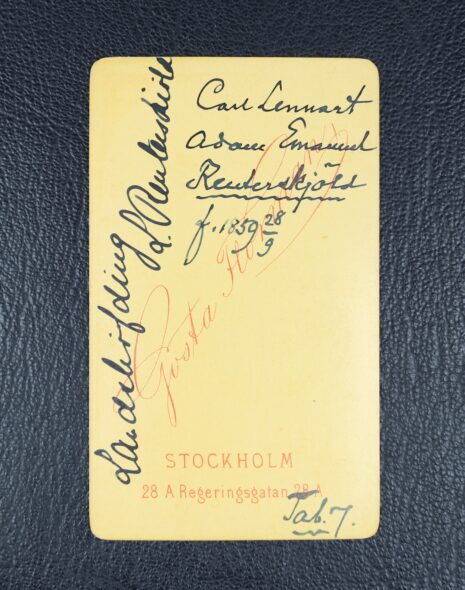 Carl Lennart
Adam Emanuel
Reuterskjöld
f. 1859 28/9
Landshöfding
L. Reuterskiöld
Gösta Florman
STOCKHOLM
28 A Regeringsgatan 28 A
Tab. 7.